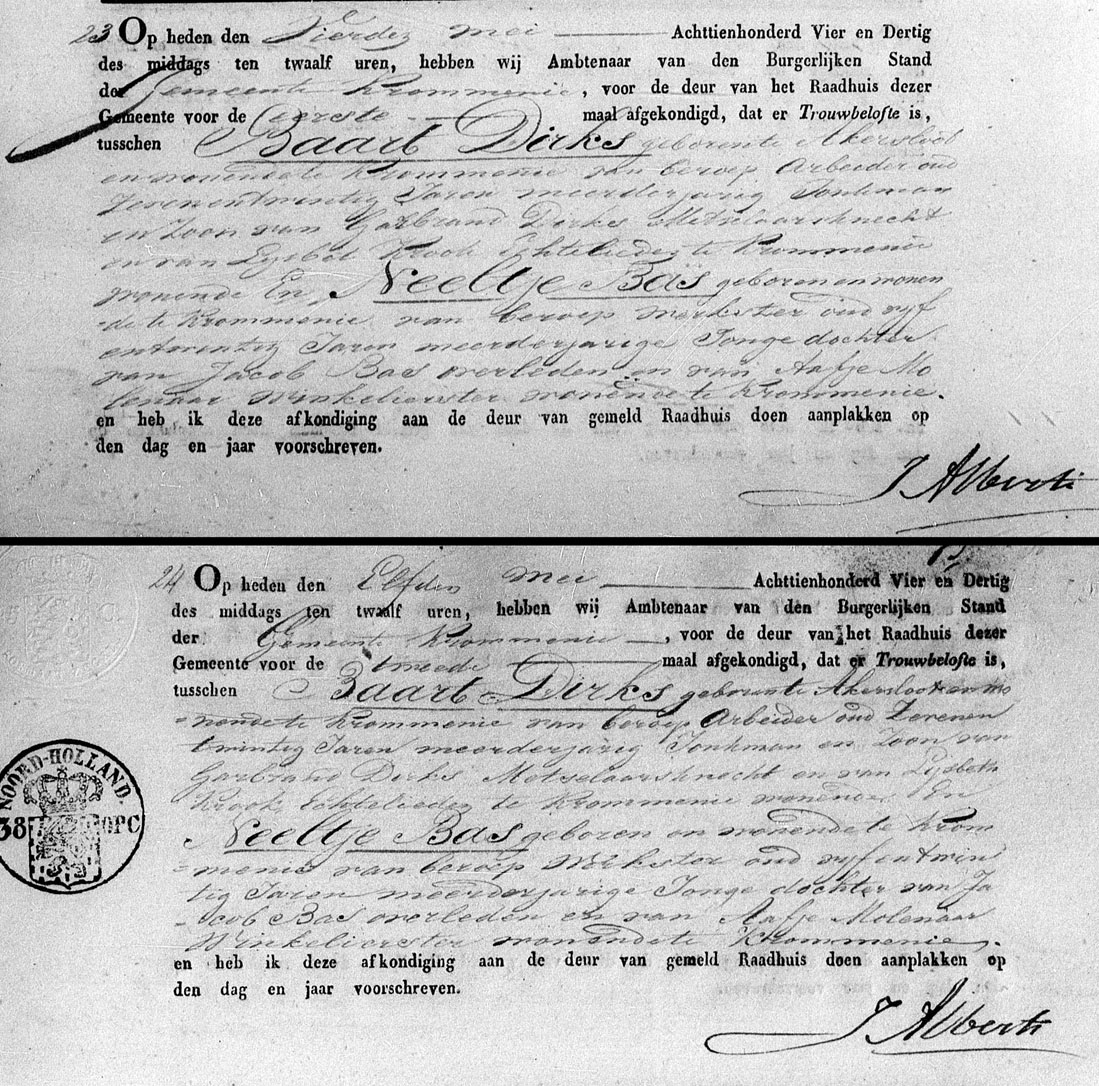 23 Op heden den Vierden mei Achttienhonderd Vier en Dertig
des middags ten twaalf uren, hebben wij Ambtenaar van den Burgerlijken Stand
der Gemeente Krommenie, voor de deur van het Raadhuis dezer
Gemeente voor de Eerste maal afgekondigd, dat er Trouwbelofte is,
tusschen Baart Dirks geboren te Akersloot
en wonende te Krommenie van beroep Arbeider oud
Zevenentwintig Jaren meerderjarig Jonkman
en Zoon van Garbrand Dirks Metselaarsknecht
en van Lijsbet Krook Echtelieden te Krommenie
wonende En, Neeltje Bas geboren en wonen
-de te Krommenie van beroep Werkster oud vijf
entwintig Jaren meerderjarige Jonge dochter
van Jacob Bas overleden en van Aafje Mo
lenaar Winkelierster wonende te Krommenie.
en heb ik deze afkondiging aan de deur van gemeld Raadhuis doen aanplakken op
den dag en jaar voorschreven.
J Alberti
24 Op heden den Elfden mei Achttienhonderd Vier en Dertig
des middags ten twaalf uren, hebben wij Ambtenaar van den Burgerlijken Stand
der Gemeente Krommenie, voor de deur van het Raadhuis dezer
Gemeente voor de tweede maal afgekondigd, dat er Trouwbelofte is,
tusschen Baart Dirks geboren te Akersloot en wo
=nende te Krommenie van beroep Arbeider oud Zevenen
twintig Jaren meerderjarig Jonkman en Zoon van
Garbrand Dirks Metselaarsknecht en van Lijsbeth
Krook Echtelieden te Krommenie wonende En
Neeltje Bas geboren en wonende te Krom
=menie van beroep Werkster oud vijfentwin
tig Jaren meerderjarige Jonge dochter van Ja
-cob Bas overleden en van Aafje Molenaar
Winkelierster wonende te Krommenie.
NOORD-HOLLAND.
38 OPC
en heb ik deze afkondiging aan de deur van gemeld Raadhuis doen aanplakken op
den dag en jaar voorschreven.
J Alberti